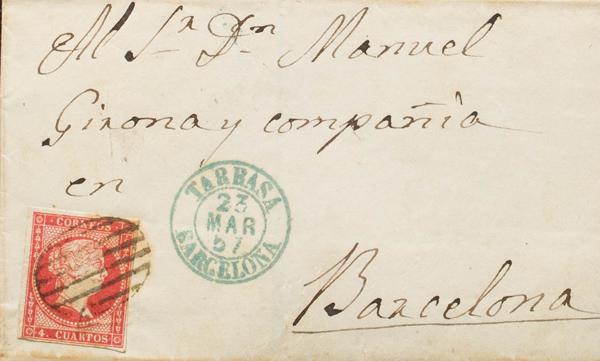 Al Sr. Dn. Manuel
Girona y compañia
en
Barcelona
TARRASA
23
MAR
57
BARCELONA
CORREOS
4. CUARTOS